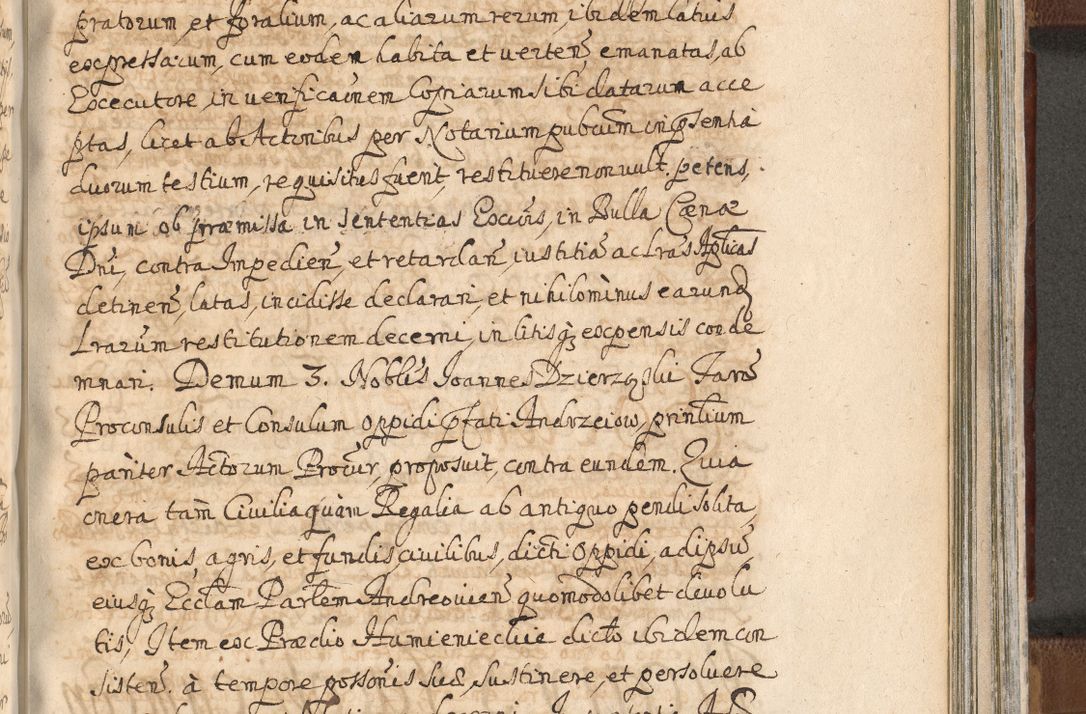 pratorum, et foralium, ac aliarum rerum, ibidem latius
expressarum, cum eodem habita et verteñ emanatas, ab
Executore, in verificãoem Copiarum sibi datarum acce
ptas, licet ab Actoribus per Notarium pubcum in pñsentia
duorum testium, requisitus fuerit, restituere non vult. petens,
ipsum ob præmissa in sententias Excõis, in Bulla Cænæ
Dni, contra Impedieñ, et retardañ, iustitiã ac lras Aplicas
detineñ, latas, incidisse declarari, et nihilominus earund
Lrarum restitutionem decerni, in litisq3 expensis conde
mnari. Demum 3. Noblis Joannes Dzierzgski Fams
Proconsulis et Consulum Oppidi pfati Andrzeiow, prinlium
pariter Actorum Procur, proposuit, contra eundem. Quia
onera tam Civilia quàm Regalia ab antiquo pendi solita,
ex bonis, agris, et fundis civilibus, dicti Oppidi, ad ipsũ
eiusq3 Ecclam Parlem Andreovieñ quomodolibet devolu
tis, Item ex Prædio Humieniechie dicto ibidem con
sisteñ. à tempore possonis suæ, sustinere, et persolvere